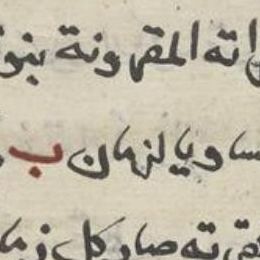 اته المقرونة بنو
ساويا لزمان ب
ته صار كل زما